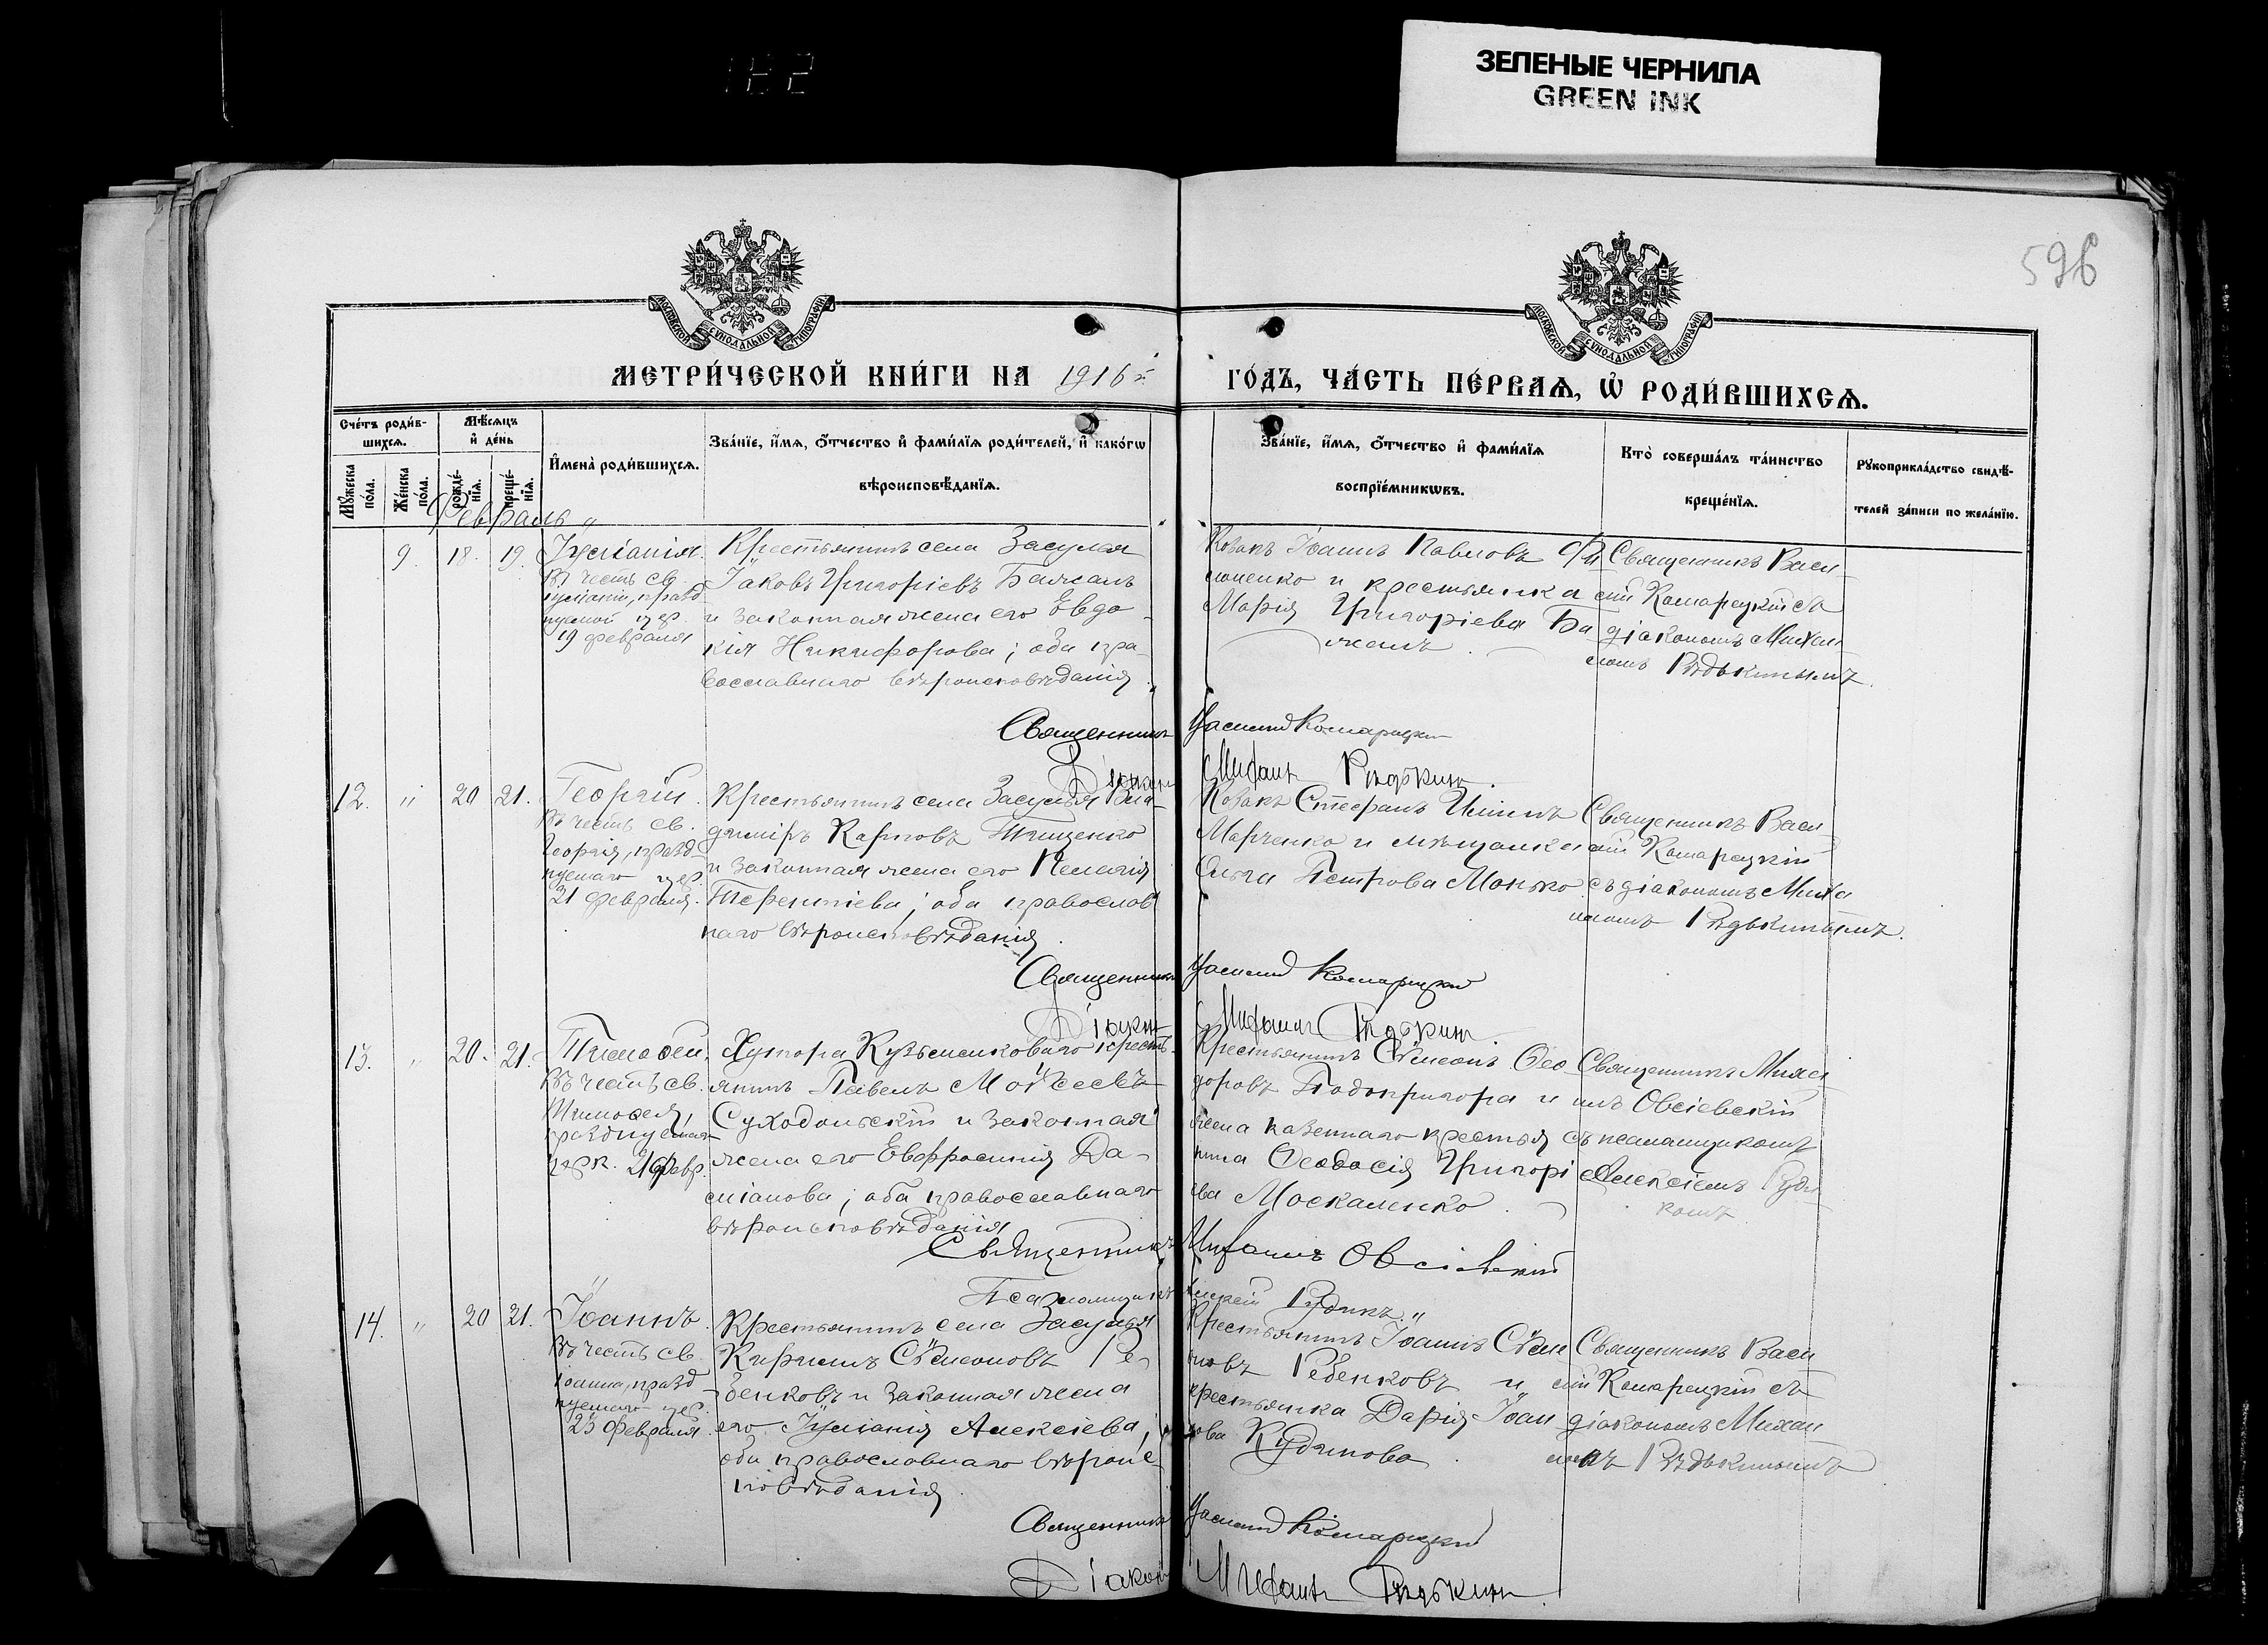 182
ЗЕЛЕНЫЕ ЧЕРНИЛА
GREEN INK
596
МОСКОВСКОЙ СѴНОДАЛЬНОЙ ТИПОГРАФІИ
МОСКОВСКОЙ СѴНОДАЛЬНОЙ ТИПОГРАФІИ
МЕТРИ́ЧЕСКОЙ КНИ́ГИ НА 1916 г.
ГО́ДЪ, ЧА́СТЬ ПЕ́РВАѦ, Ѡ҆ РОДИ́ВШИХСѦ.
Сче́тъ роди́в-
шихсѧ.
Мꙋ́жеска по́ла.
Же́нска по́ла.
Мѣ́сѧцъ
и҆ де́нь
рожде́-
нїѧ.
креще́-
нїѧ.
И҆мена̀ роди́вшихсѧ.
Зва́нїе, и҆́мѧ, ѻ҆́тчество и҆ фами́лїѧ роди́телей, и҆ како́гѡ
вѣроисповѣ́данїѧ.
Зва́нїе, и҆́мѧ, ѻ҆́тчество и҆ фами́лїѧ
воспрїе́мникѡвъ.
Кто̀ соверша́лъ та́инство
креще́нїѧ.
Рꙋкоприкла́дство свидѣ́-
телей за́писи по жела́нїю.
Февраль
9. 18. 19.
Іуліанія.
Въ честь св.
Іуліаніи, празд
нуемой цер.
19 февраля
Крестьянинъ села Засулья
Іаковъ Григоріевъ Бажанъ
и законная жена его Евдо-
кія Никифорова; оба пра-
вославнаго вѣроисповѣданія.
Козакъ Іоаннъ Павловъ
и крестьянка
Марія Григоріева Ба
жанъ
Священникъ Васи-
лій Комарецкій съ
діакономъ Михаи
ломъ Рѣдькинымъ.
Священникъ Василій Комарецкій
Діаконъ Михаилъ Рѣдькинъ
12. " 20 21.
Георгій.
Въ честь св.
Георгія, празд-
нуемаго цер.
21 февраля.
Крестьянинъ села Засулья Вла-
диміръ Карповъ Тищенко
и законная жена его Пелагія
Терентіева; оба православ
наго вѣроисповѣданія.
Козакъ Стефанъ
Марченко и мѣщанка
Ольга Петрова Монько
Священникъ Васи-
лій Комарецкій
съ діакономъ Миха
иломъ Рѣдькинымъ.
Священникъ Василій Комарецкій
Діаконъ Михаилъ Рѣдькинъ
13. " 20. 21.
Тимофей.
Въ честь св.
Тимофея,
празднуемаго
церк. 21 февр.
Хутора Кузьменковаго кресть-
янинъ Павелъ Моѵсеевъ
Суходольскій и законная
жена его Евфросинія Да-
міанова; оба православнаго
вѣроисповѣданія
Крестьянинъ Сѵмеонъ Ѳео
доровъ Подопригора и
жена казеннаго крестья
нина Ѳеодосія Григорі
ева Москаленко.
Священникъ Миха
илъ Овсіевскій
съ псаломщикомъ
Алексіемъ Руди
комъ
Священникъ Михаилъ Овсіевскій
Псаломщикъ Алексій Рудикъ"
14. " 20 21.
Іоаннъ.
Въ честь св.
Іоанна, празд
нуемаго цер.
25 февраля
Крестьянинъ села Засулья
Кириллъ Сѵмеоновъ Ре-
бенковъ и законная жена
его Іуліанія Алексіева;
оба православнаго вѣроис
повѣданія.
Крестьянинъ Іоаннъ Сѵме
оновъ Ребенковъ и
крестьянка Дарія Іоан
нова Кудинова.
Священникъ Васи
лій Комарецкій съ
діакономъ Михаи
ломъ Рѣдькинымъ
Священникъ Василій Комарецкій
Діаконъ Михаилъ Рѣдькинъ.